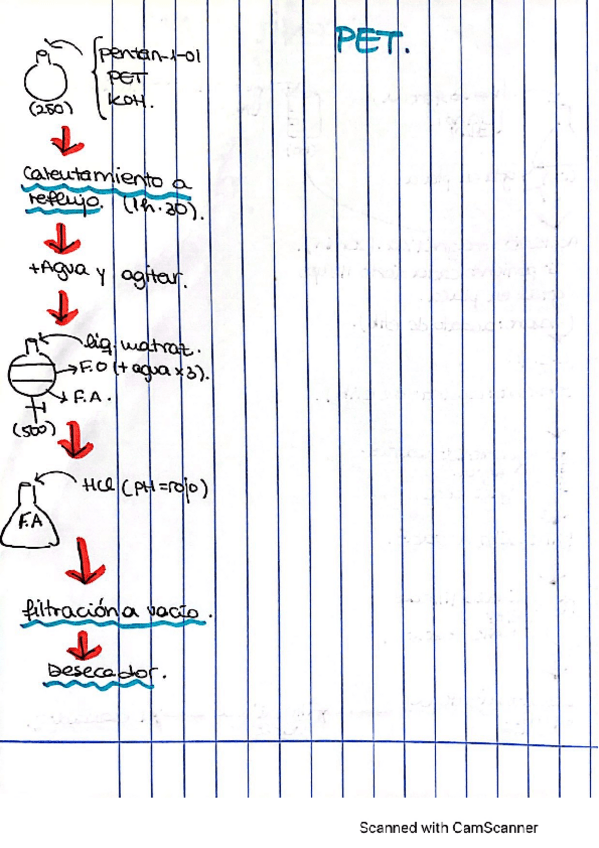 PET.
pentan-1-ol
PET
KOH.
(250)
Calentamiento a
reflujo. (1h.30).
+Agua y agitar.
liq. matraz.
F.O (+ agua x3).
F.A.
(500)
HCl (PH=rojo)
F.A
filtración a vacío.
Desecador.
Scanned with CamScanner